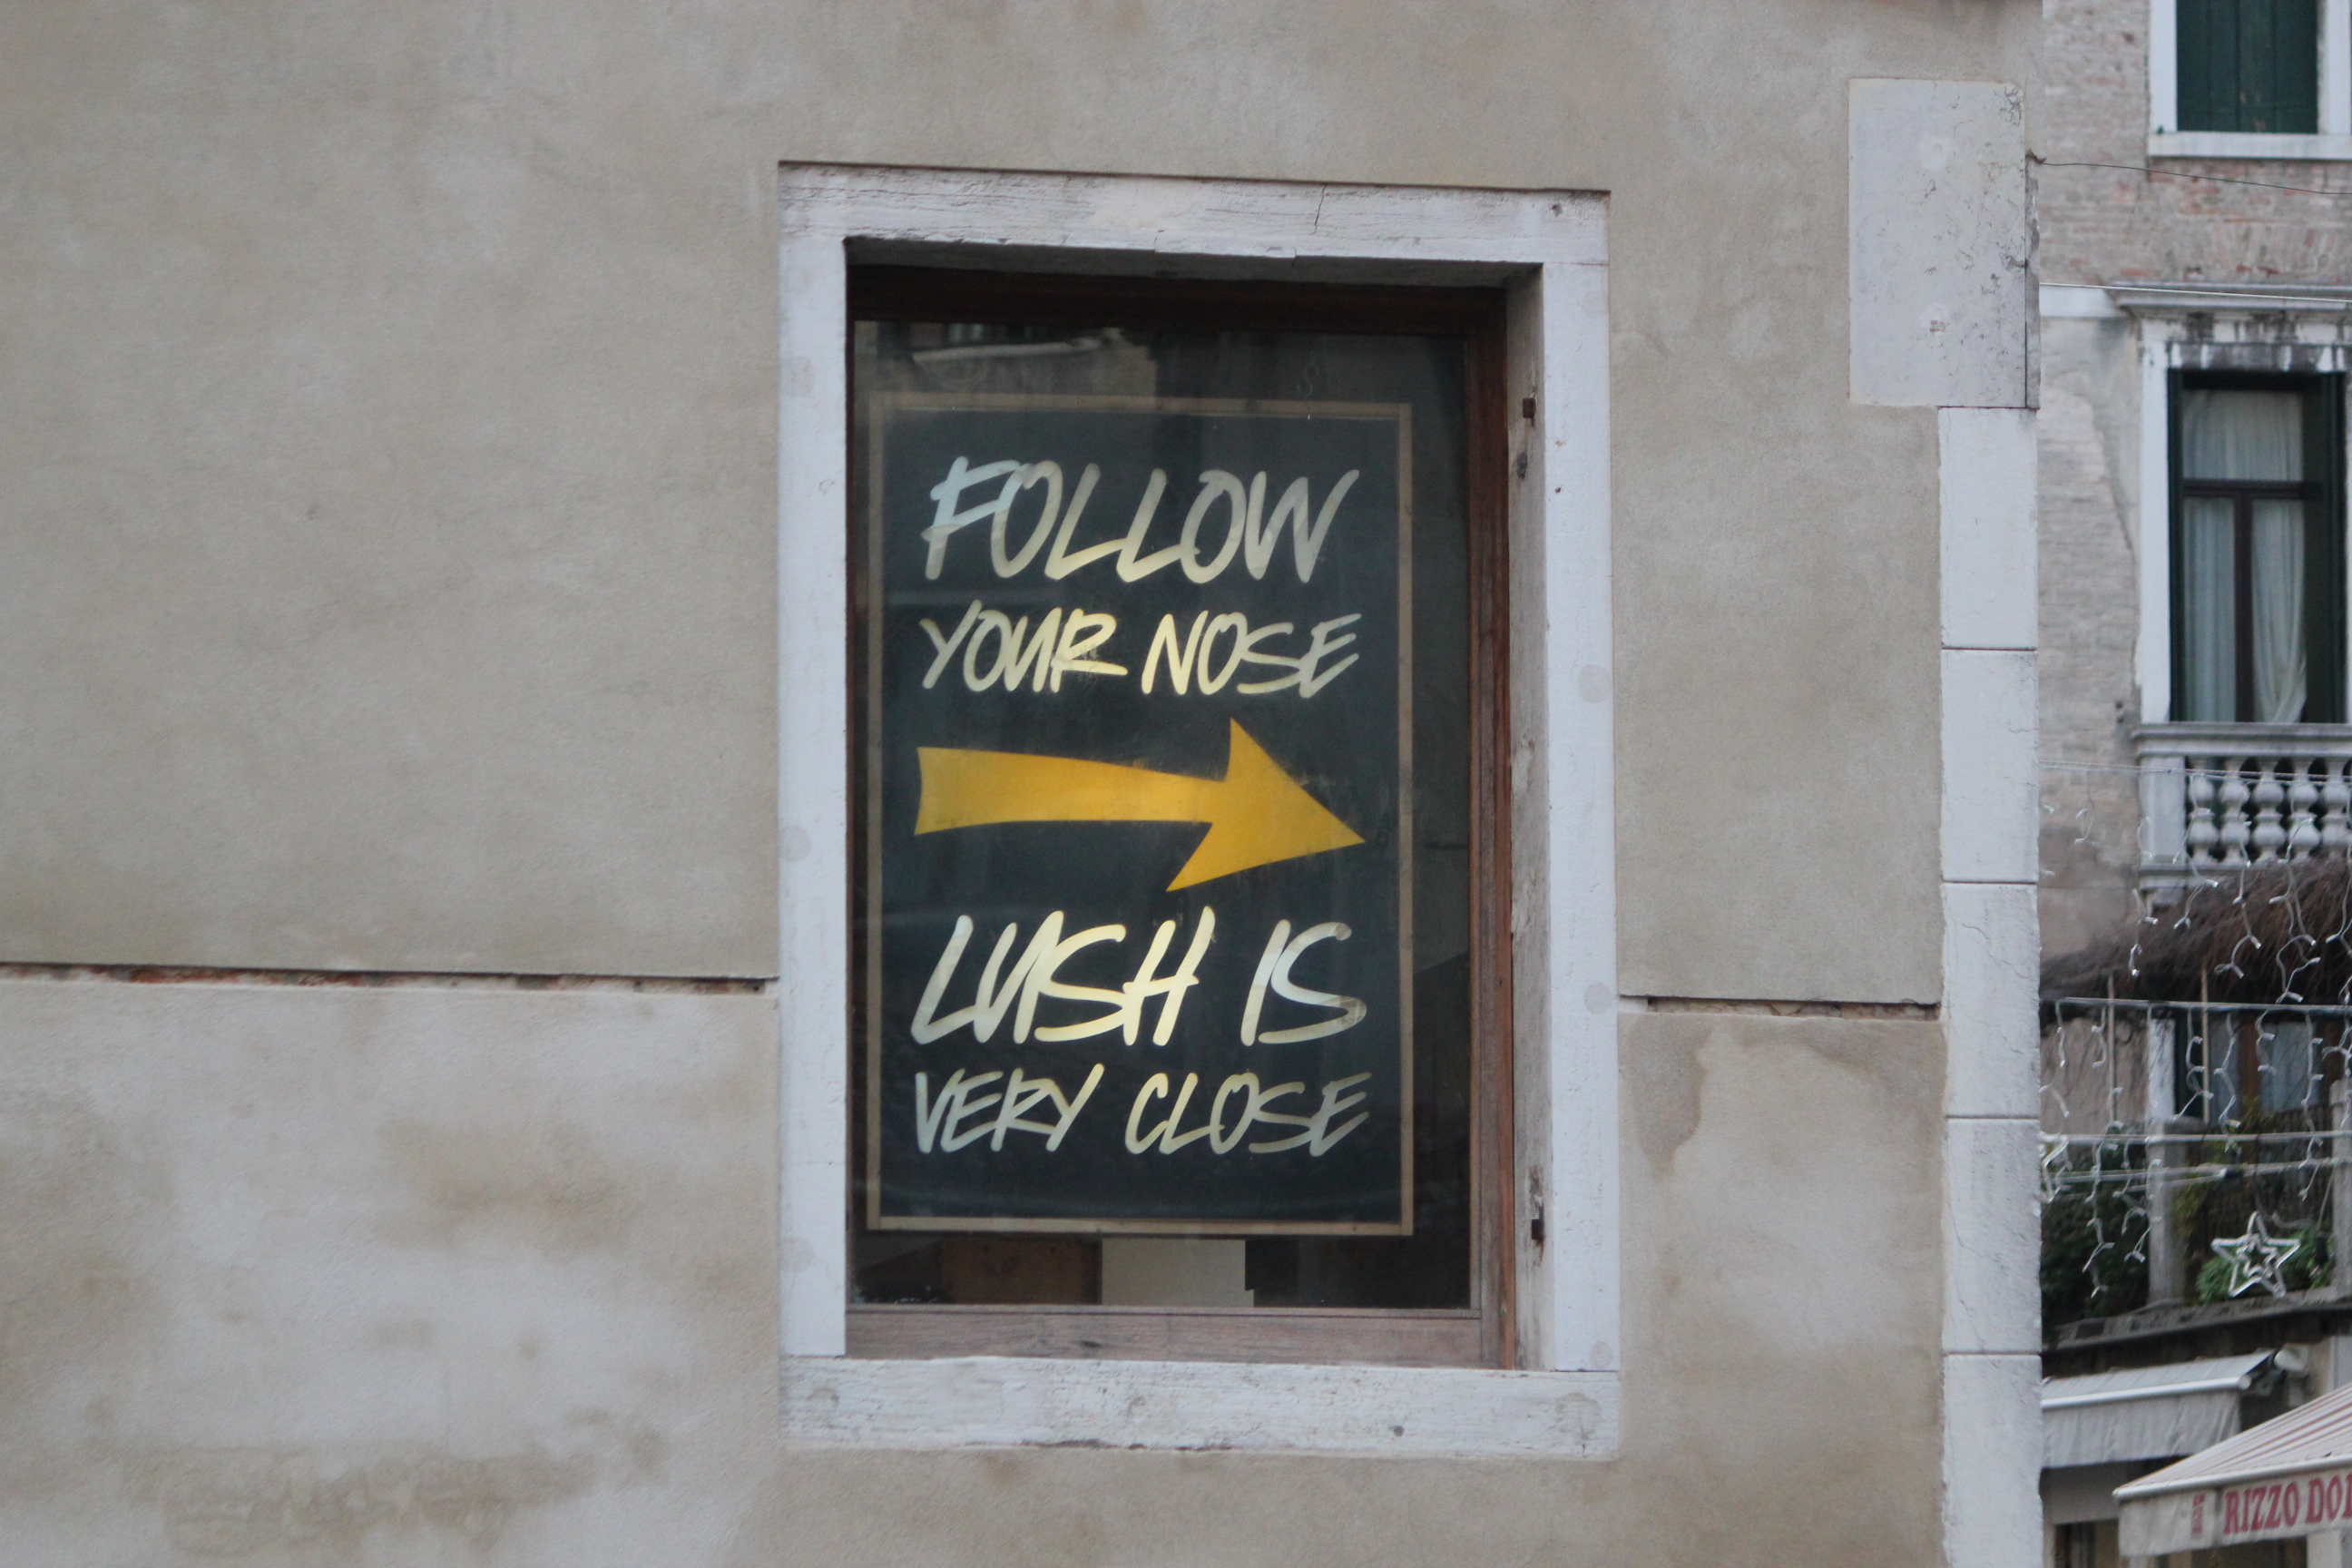 FOLLOW
YOUR NOSE
LUSH IS
VERY CLOSE
RIZZO